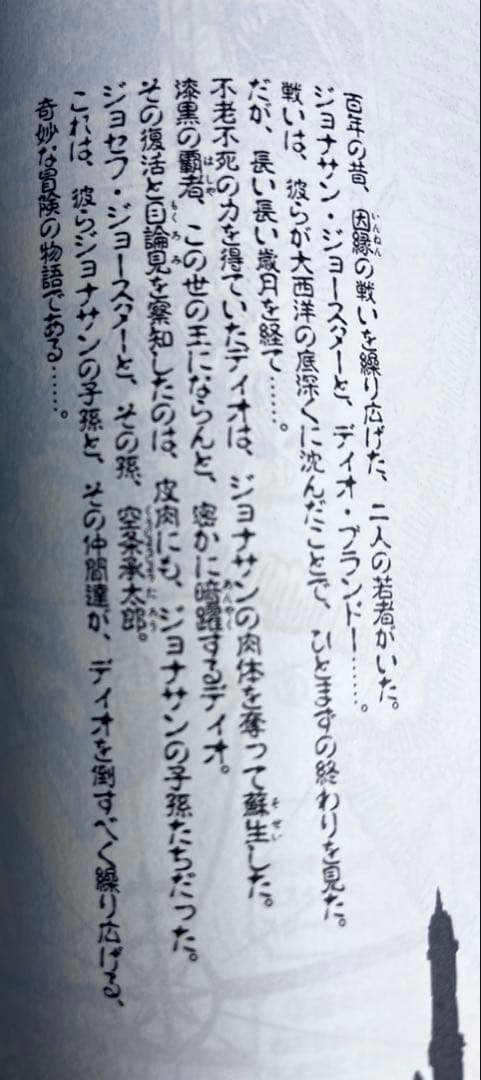 百年の昔、因縁の戦いを繰り広げた、二人の若者がいた。
ジョナサン・ジョースターと、ディオ・ブランドー……。
戦いは、彼らが大西洋の底深くに沈んだことで、ひとまずの終わりを見た。
だが、長い長い歳月を経て……。
不老不死の力を得ていたディオは、ジョナサンの肉体を奪って蘇生した。
漆黒の覇者、この世の王にならんと、密かに暗躍するディオ。
その復活と目論見を察知したのは、皮肉にも、ジョナサンの子孫たちだった。
ジョセフ・ジョースターと、その孫、空条承太郎。
これは、彼らジョナサンの子孫と、その仲間達が、ディオを倒すべく繰り広げる、
奇妙な冒険の物語である……。